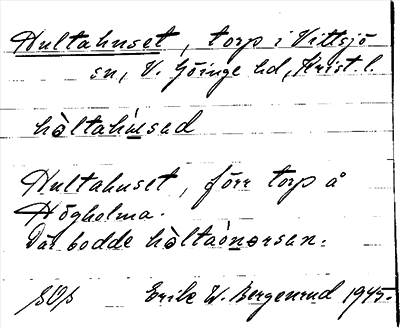 Hultahuset, torp i Vittsjö
sn, V. Göinge hd, Krist. l.
hòltahu̇sad
Hultahuset, förr torp å
Högholma.
Där bodde hòltaȯnorsan.
Erik W. Bergenrud 1945.